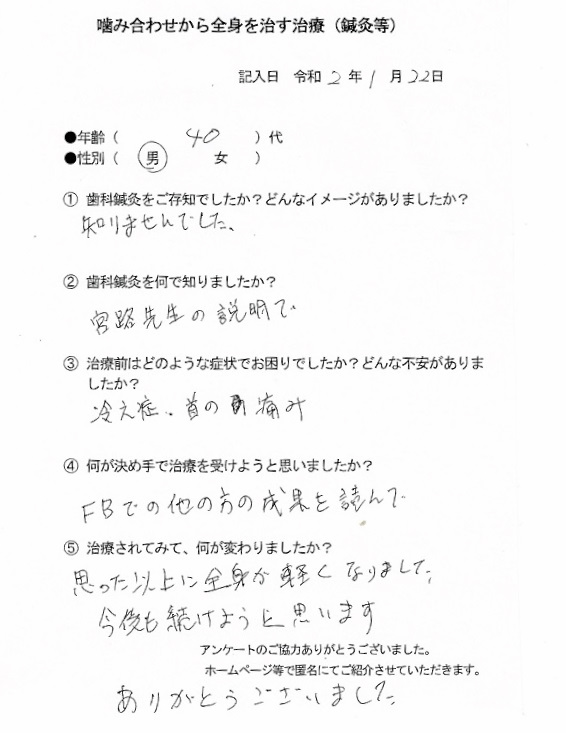 噛み合わせから全身を治す治療（鍼灸等）
記入日 令和 2 年 1 月 22日
●年齢（ 40 ）代
●性別（ 男 女 ）
① 歯科鍼灸をご存知でしたか？どんなイメージがありましたか？
知りませんでした、
② 歯科鍼灸を何で知りましたか？
宮路先生の説明で
③ 治療前はどのような症状でお困りでしたか？どんな不安がありま
したか？
冷え症、首の痛み
④ 何が決め手で治療を受けようと思いましたか？
FBでの他の方の成果を読んで
⑤ 治療されてみて、何が変わりましたか？
思った以上に全身が軽くなりました、
今後も続けようと思います
アンケートのご協力ありがとうございました。
ホームページ等で匿名にてご紹介させていただきます。
ありがとうございました